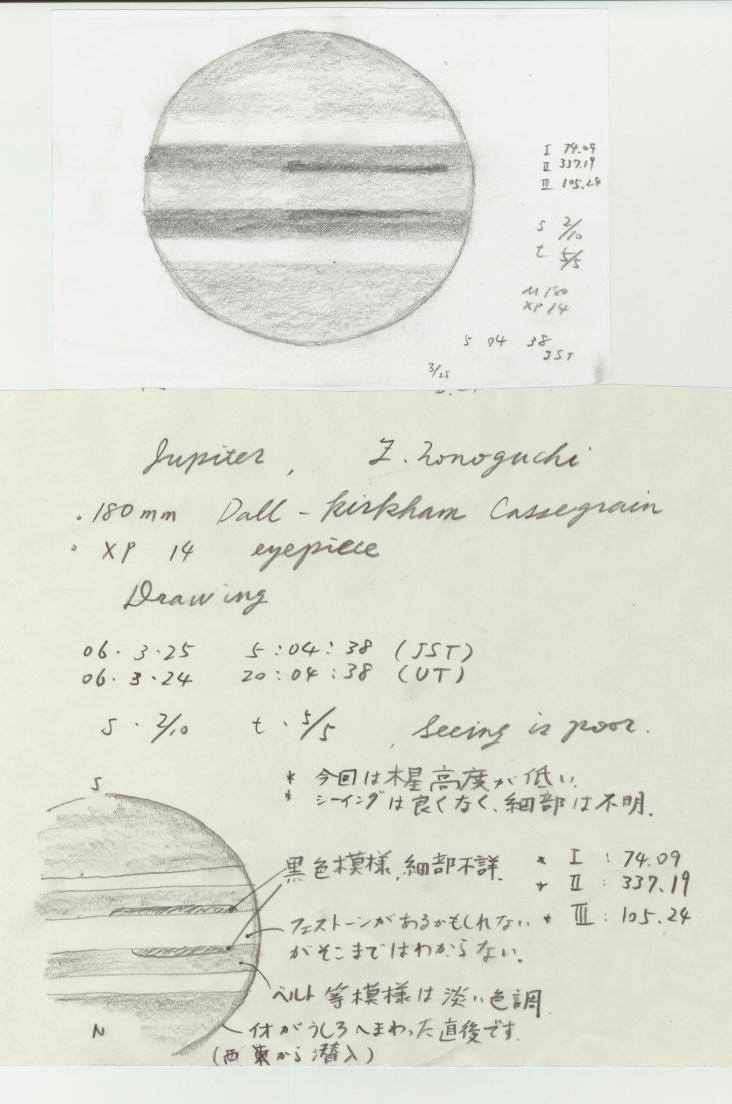 I 74.09
II 337.19
III 105.24
S 2/10
t 5/5
M 180
XP 14
5 04 38
JST
3/25
Jupiter, Z. Nonoguchi
・180mm Dall-Kirkham Cassegrain
・XP 14 eyepiece
Drawing
06・3・25 5:04:38 (JST)
06・3・24 20:04:38 (UT)
S・2/10 t・5/5 , Seeing is poor.
S
* 今回は木星高度が低い.
* シーイングは良くなく、細部は不明.
黒色模様,細部不詳.
* I : 74.09
* II : 337.19
* III : 105.24
フェストーンがあるかもしれない
がそこまではわからない.
ベルト等模様は淡い色調
N
イオがうしろへまわった直後です.
(西東から潜入)